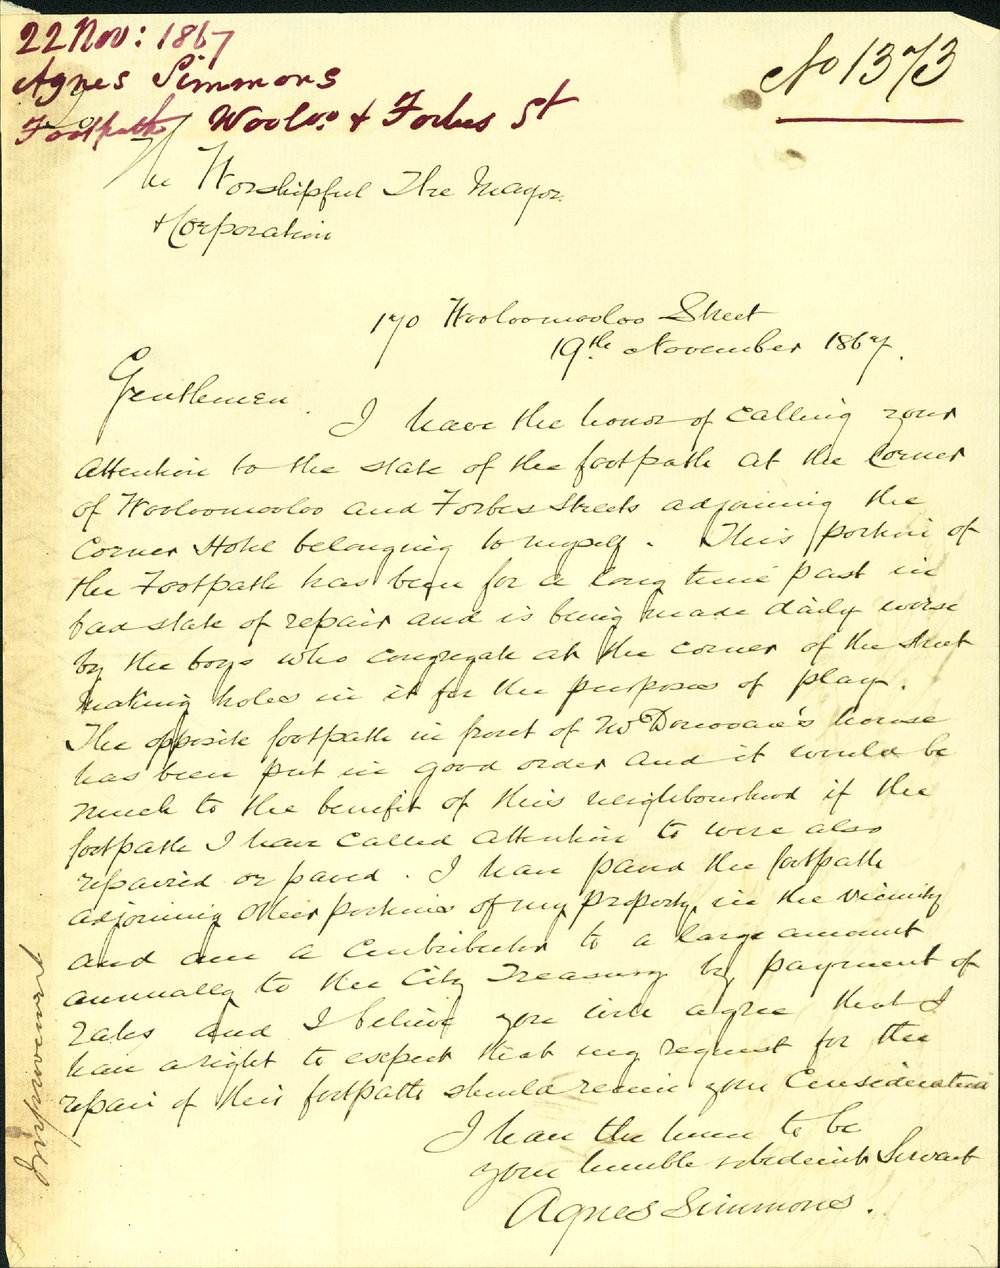 22 Nov: 1867
Agnes Simmons
Footpath Wooloo. & Forbes St
No 1373
The Worshipful The Mayor
& Corporation
170 Wooloomooloo Street
19th November 1867.
Gentlemen.
I have the honor of calling your
attention to the state of the footpath at the Corner
of Wooloomooloo and Forbes Streets adjoining the
Corner Hotel belonging to myself. This portion of
the Footpath has been for a long time past in
bad state of repair and is being made daily worse
by the boys who congregate at the corner of the street
making holes in it for the purposes of play.
The opposite footpath in front of Mr Donovan's house
has been put in good order and it would be
much to the benefit of this neighbourhood if the
footpath I have called attention to were also
repaired or paved. I have paved the footpath
adjoining other portions of my property in the vicinity
and am a Contributor to a large amount
annually to the City Treasury by payment of
rates and I believe you will agree that I
have a right to expect that my request for the
repair of this footpath should receive your Consideration
I have the honor to be
your humble & obedient Servant
Agnes Simmons.